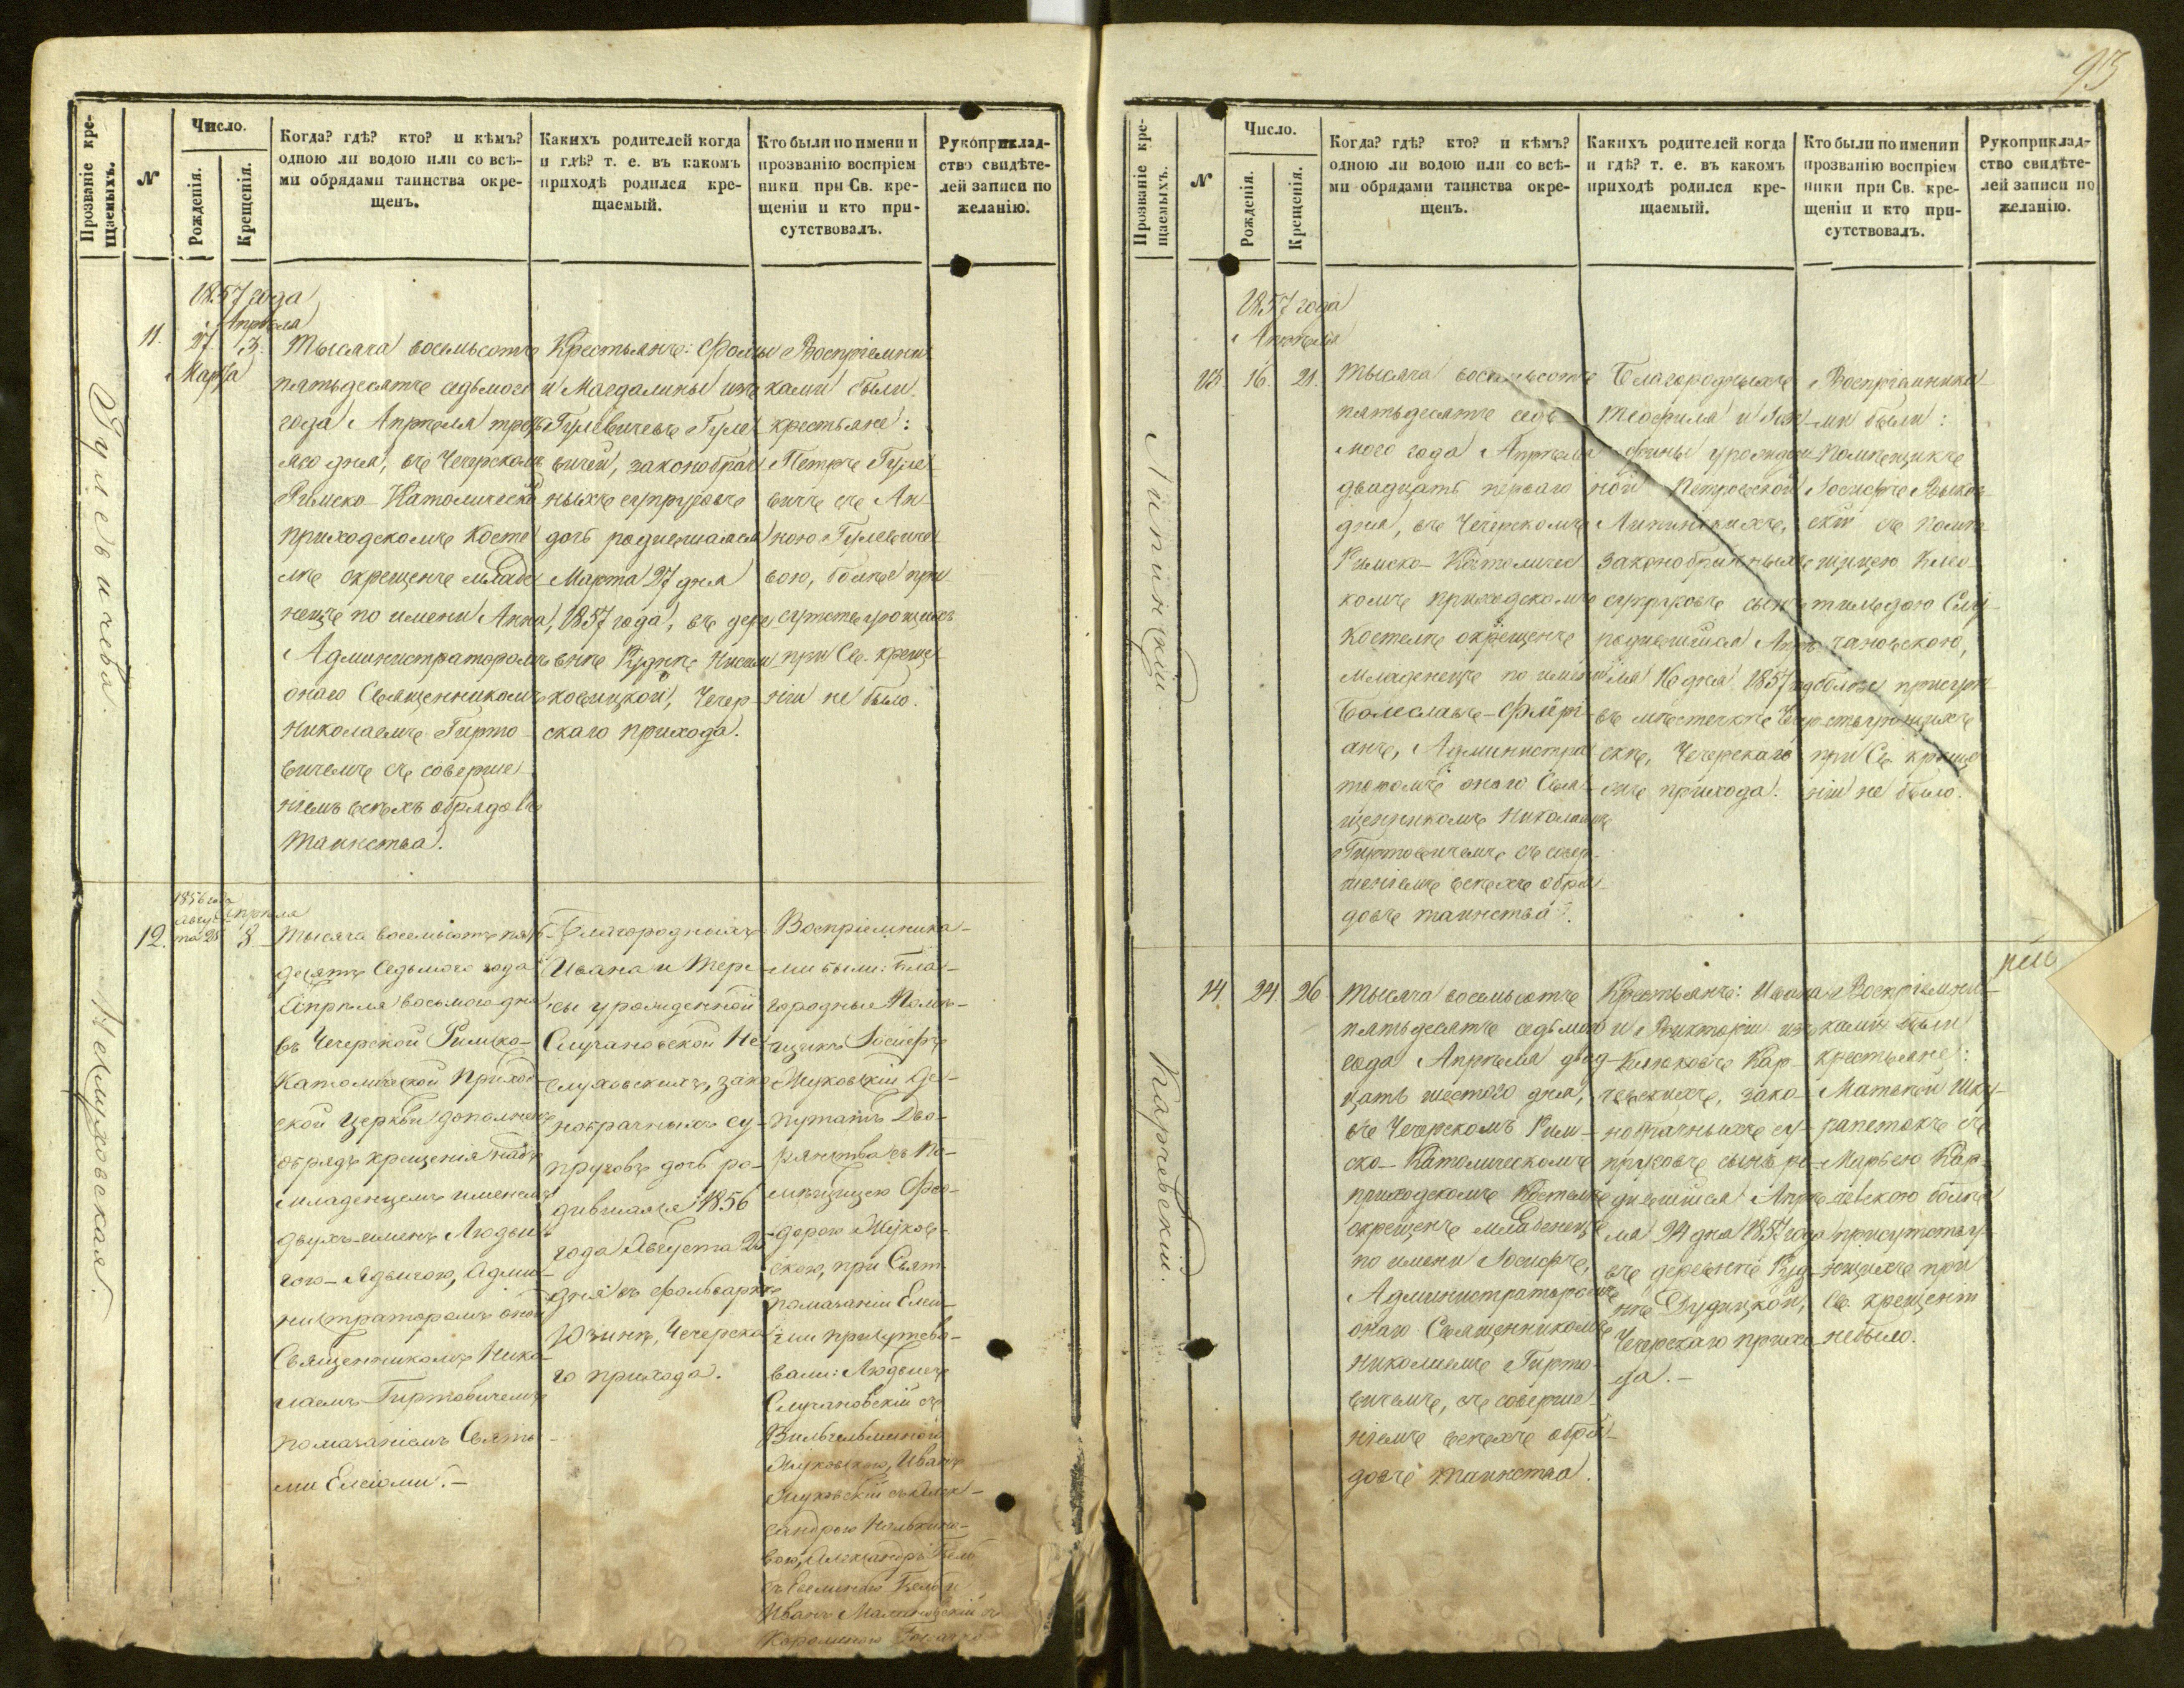 93
Прозваніе кре-
щаемыхъ.
№
Число.
Рожденія.
Крещенія.
Когда? гдѣ? кто? и кѣмъ?
одною ли водою или со всѣ-
ми обрядами таинства окре-
щенъ.
Какихъ родителей когда
и гдѣ? т. е. въ какомъ
приходѣ родился кре-
щаемый.
Кто были по имени и
прозванію воспріем
ники при Св. кре-
щеніи и кто при-
сутствовалъ.
Рукоприклад-
ство свидѣте-
лей записи по
желанію.
Гулевичева.
1857 года
Апрѣля
11. 27. 3.
Марта
Тысяча восемьсотъ
пятьдесятъ седьмаго
года Апрѣля треть
яго дня, въ Чечерскомъ
Римско-Католическо
приходскомъ Косте
лѣ окрещенъ младе
нецъ по имени Анна,
Администраторомъ
онаго Священникомъ
Николаемъ Гирто-
вичемъ съ соверше-
ніемъ всѣхъ обрядовъ
таинства.
Крестьянъ: Фомы
и Магдалины изъ
Гулевичевъ Гуле
вичей, законобрач
ныхъ супруговъ
дочь родившаяся
Марта 27 дня
1857 года, въ дере
внѣ Руднѣ Нисим
ковицкой, Чечер-
скаго прихода.
Воспріемни
ками были
крестьяне:
Петръ Гуле
вичъ съ Ан-
ною Гулевиче
вою, болѣе при
сутствующихъ
при Св. креще-
ніи не было.
Неслуховская.
1856 года
Авгус Апрѣля
12. та 25 8
Тысяча восемьсотъ пять-
десятъ Седьмого года
Апрѣля восьмого дня
въ Чечерской Римско-
Католической Приход-
ской Церкви дополненъ
обрядъ крещенія надъ
младенцемъ именемъ
двухъ-именъ Людви-
гою-Ядвигою, Адми-
нистраторомъ оной
Священникомъ Нико-
лаемъ Гиртовичемъ
помазаніемъ Святы-
ми Елеіями.-
Благородныхъ
Ивана и Тере-
сы урожденной
Случановской Не-
слуховскихъ, зако-
нобрачныхъ су-
пруговъ дочь ро-
дившаяся 1856
года Августа 25
дня въ фольваркѣ
Юзинѣ, Чечерска-
го прихода.
Воспріемника-
ми были: Бла-
городные Помѣ-
щикъ Іосифъ
Жуковскій Де-
путатъ Дво-
рянства съ По-
мѣщицею Фео-
дорою Жуков-
скою, при Свят.
помазаніи Елея-
ми присутство-
вали: Людвигъ
Случановскій съ
Вильгельминою
Жуковскою, Иванъ
Жуковскій съ Алек-
сандрою
вою, Александръ
съ
Иванъ Малиновскій съ
Каролиною
Прозваніе кре-
щаемыхъ.
№
Число.
Рожденія.
Крещенія.
Когда? гдѣ? кто? и кѣмъ?
одною ли водою или со всѣ-
ми обрядами таинства окре-
щенъ.
Какихъ родителей когда
и гдѣ? т. е. въ какомъ
приходѣ родился кре-
щаемый.
Кто были по имени и
прозванію воспріем
ники при Св. кре-
щеніи и кто при-
сутствовалъ.
Рукоприклад-
ство свидѣте-
лей записи по
желанію.
Липинскій.
1857 года
Апрѣля
13. 16. 21.
Тысяча восемьсотъ
пятьдесятъ седь-
мого года Апрѣля
двадцать перваго
дня, въ Чечерскомъ
Римско-Католичес
комъ приходскомъ
Костелѣ окрещенъ
младенецъ по имени
Болеславъ-Флёри-
анъ, Администра
торомъ онаго Свя-
щенникомъ Николаемъ
Гиртовичемъ съ совер-
шеніемъ всѣхъ обря-
довъ таинства.
Благородныхъ
Теофиля и
урожден
ной Петровской
Липинскихъ,
законобрачныхъ
супруговъ сынъ
родившійся Апрѣ
ля 16 дня 1857 года
въ мѣстечкѣ Чечер
скѣ, Чечерскаго
онъ прихода.
Воспріемника
ми были:
Помѣщикъ
Іосифъ
скій съ помѣ
щицею Клео-
тильдою Слу-
чановскою,
болѣе присут-
ствующихъ
при Св. креще
ніи не было.
Карчевскій.
14. 24. 26.
Тысяча восемьсотъ
пятьдесятъ седьмого
года Апрѣля двад
цать шестого дня,
въ Чечерскомъ Рим-
ско-Католическомъ
приходскомъ Костелѣ
окрещенъ младенецъ
по имени Іосифъ,
Администраторомъ
онаго Священникомъ
Николаемъ Гирто-
вичемъ, съ соверше-
ніемъ всѣхъ обря-
довъ таинства.
Крестьянъ: Ивана
и Викторіи изъ
Кар-
чевскихъ, зако-
нобрачныхъ су-
пруговъ сынъ ро-
дившійся Апрѣ-
ля 24 дня 1857 года
въ деревнѣ Руд-
нѣ Дудицкой,
Чечерскаго прихо
да.-
Воспріемни-
ками были
крестьяне:
Матвѣй
съ
Марьею Кар-
чевскою болѣе
присутству-
ющихъ при
Св. крещеніи
не было.